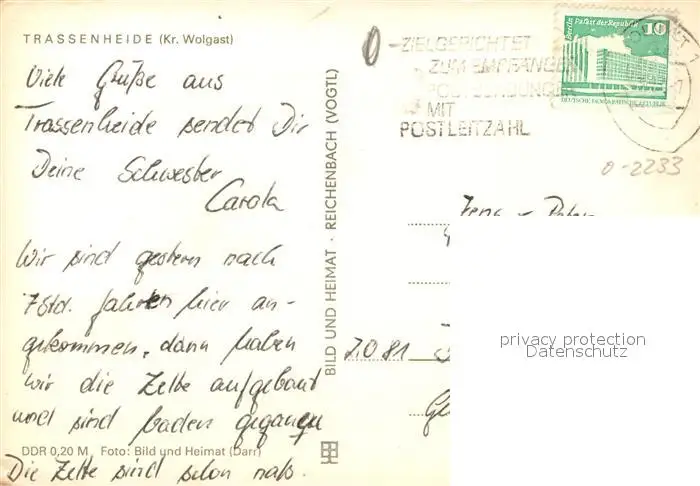 TRASSENHEIDE (Kr. Wolgast)
Viele Grüße aus
Trassenheide sendet Dir
Deine Schwester
Carola
Wir sind gestern nach
7 Std. fahren hier an-
gekommen, dann haben
wir die Zelte aufgebaut
und sind baden gegangen
DDR 0,20 M Foto: Bild und Heimat (Darr)
Die Zelte sind schon naß.
BILD UND HEIMAT · REICHENBACH (VOGTL)
ZIELGERICHTET
ZUM EMPFÄNGER
POSTSENDUNGEN
MIT
POSTLEITZAHL
Berlin Palast der Republik
10
DEUTSCHE DEMOKRATISCHE REPUBLIK
0-2233
7081
privacy protection
Datenschutz